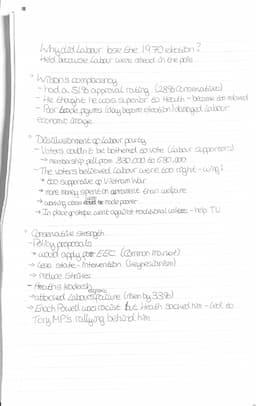 Why did Labour lose the 1970 election?
Held because Labour were ahead in the polls
* Wilson's complacency
- had a 51% approval rating (28% Conservatives)
- He thought he was superior to Heath - became too relaxed
- Poor trade figures (day before election) damaged Labour
Economic image.
* Disillusionment of Labour party
- Voters couldn't be bothered to vote (Labour supporters)
→ membership fell from 830,000 to 680,000
- The voters believed Labour were too right-wing!
* too supportive of Vietnam War
* more money spent on than welfare
→ working class made poorer
→ In place of strife went against traditional voters - help TU
* Conservative strength
- Policy proposals
→ would apply for EEC (Common Market)
→ less state-intervention (Keynesianism)
→ reduce Strikes
- Heath's
→ attacked Labour's (risen by 33%)
→ Enoch Powell was racist but Heath sacked him - led to
Tory MP's rallying behind him